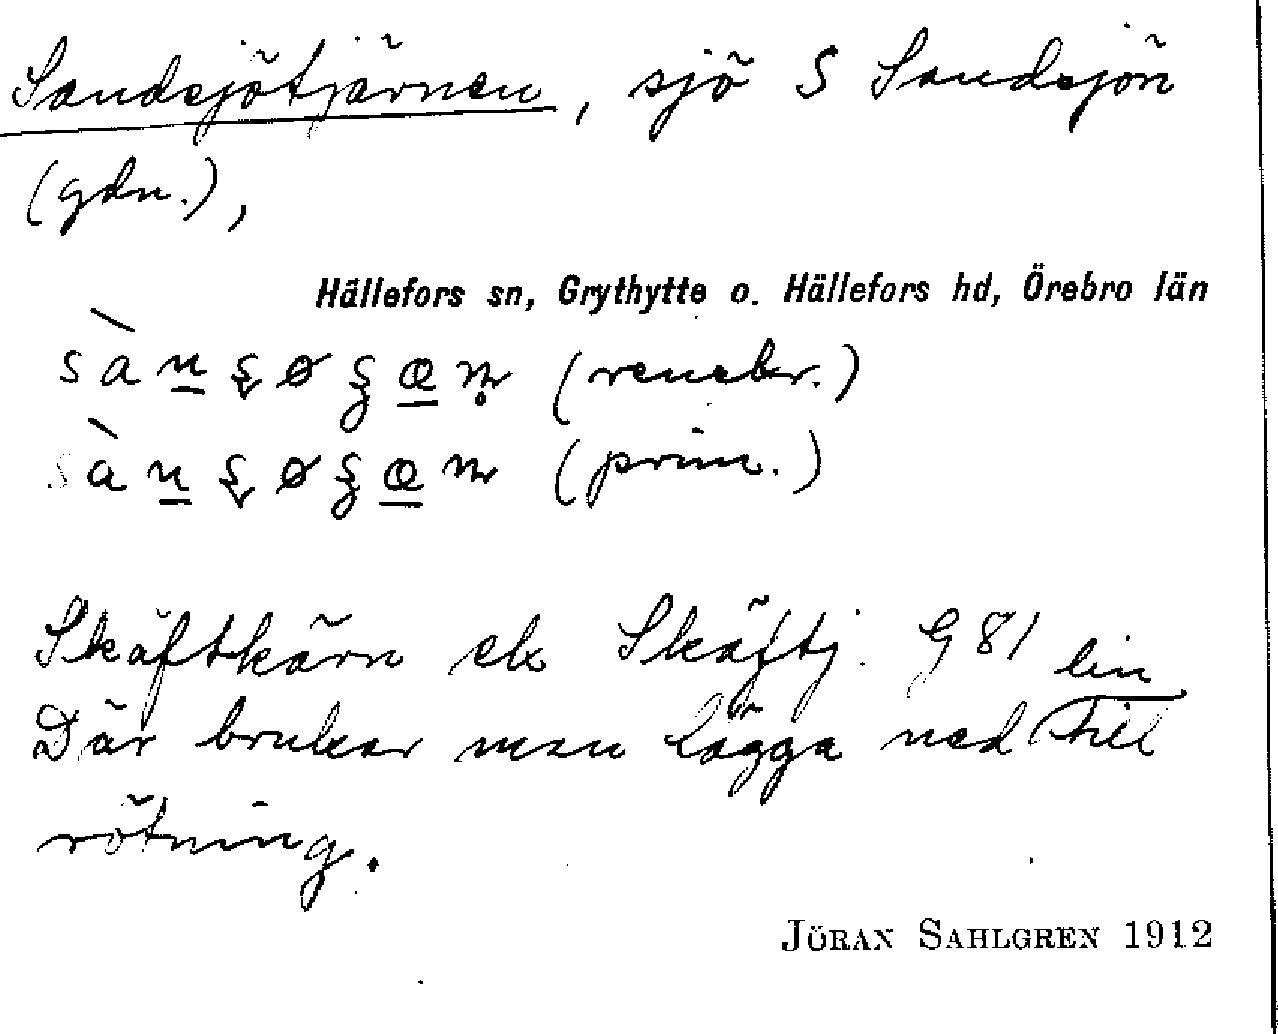 Sandsjötjärnen, sjö S Sandsjön
(gdn.),
Hällefors sn, Grythytte o. Hällefors hd, Örebro län
(renskr.)
(prim.)
Skäftkärn ek Skäftj. G 81
Där brukar man lägga ned lin till
rötning.
JÖRAN SAHLGREN 1912